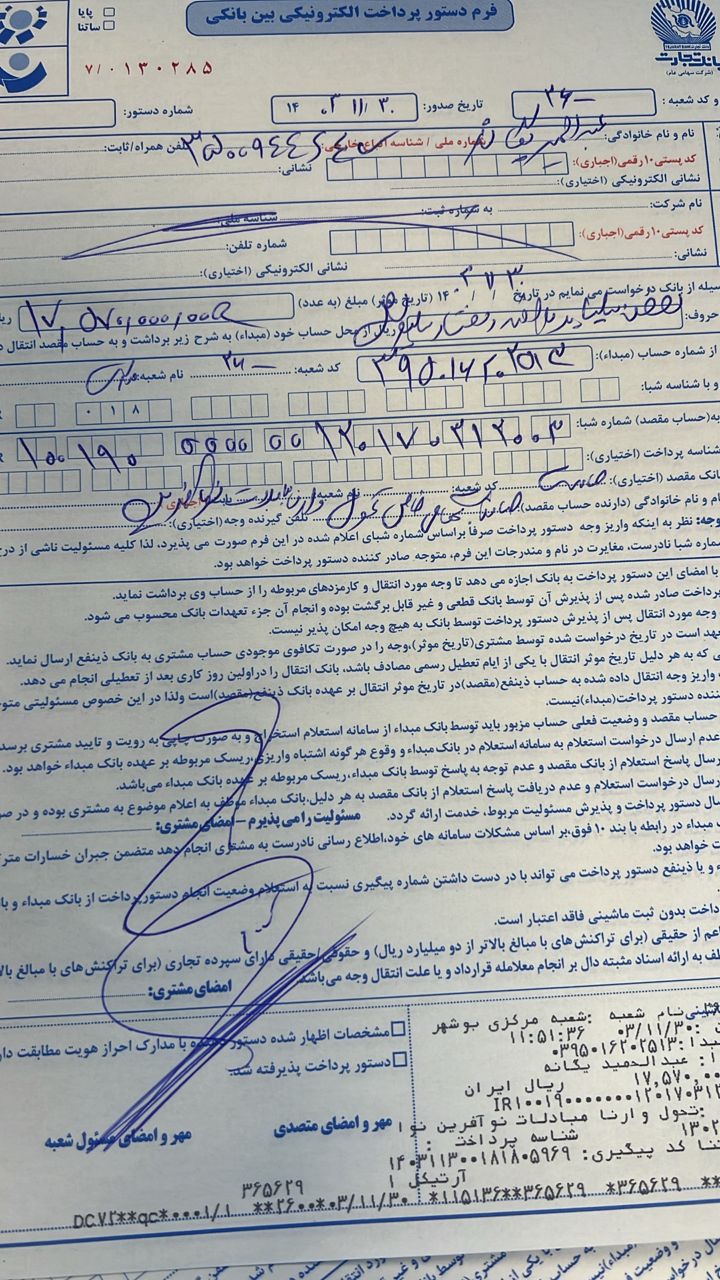 فرم دستور پرداخت الکترونیکی بین بانکی
پایا
ساتنا
بانک تجارت
(شرکت سهامی عام)
۷/۰۱۳۰۲۸۵
و کد شعبه: ۲۶۰۰ تاریخ صدور: ۱۴۰۳/۱۱/۳۰ شماره دستور:
نام و نام خانوادگی: شماره ملی / شناسه تلفن همراه/ثابت:
کد پستی ۱۰ رقمی(اجباری): نشانی:
نشانی الکترونیکی (اختیاری):
نام شرکت: به شماره ثبت: شناسه ملی:
کد پستی ۱۰ رقمی(اجباری): شماره تلفن:
نشانی: نشانی الکترونیکی (اختیاری):
سیله از بانک درخواست می نمایم در تاریخ ۱۴ (تاریخ موثر) مبلغ (به عدد)
حروف: ریال از محل حساب خود (مبداء) به شرح زیر برداشت و به حساب مقصد انتقال
از شماره حساب (مبداء): کد شعبه: نام شعبه:
و با شناسه شبا: ۰۱۸
به(حساب مقصد) شماره شبا:
شناسه پرداخت (اختیاری):
انک مقصد (اختیاری): کد شعبه: نام شعبه:
م و نام خانوادگی (دارنده حساب مقصد) تلفن گیرنده وجه(اختیاری):
وجه: نظر به اینکه واریز وجه دستور پرداخت صرفاً براساس شماره شبای اعلام شده در این فرم صورت می پذیرد، لذا کلیه مسئولیت ناشی از درج
شماره شبا نادرست، مغایرت در نام و مندرجات این فرم، متوجه صادر کننده دستور پرداخت خواهد بود.
با امضای این دستور پرداخت به بانک اجازه می دهد تا وجه مورد انتقال و کارمزدهای مربوطه را از حساب وی برداشت نماید.
پرداخت صادر شده پس از پذیرش آن توسط بانک قطعی و غیر قابل برگشت بوده و انجام آن جزء تعهدات بانک محسوب می شود.
وجه مورد انتقال پس از پذیرش دستور پرداخت توسط بانک به هیچ وجه امکان پذیر نیست.
هد است در تاریخ درخواست شده توسط مشتری(تاریخ موثر)،وجه را در صورت تکافوی موجودی حساب مشتری به بانک ذینفع ارسال نماید.
ی که به هر دلیل تاریخ موثر انتقال با یکی از ایام تعطیل رسمی مصادف باشد، بانک انتقال را دراولین روز کاری بعد از تعطیلی انجام می دهد.
واریز وجه انتقال داده شده به حساب ذینفع(مقصد)در تاریخ موثر انتقال بر عهده بانک ذینفع(مقصد)است ولذا در این خصوص مسئولیتی متوجه
ننده دستور پرداخت(مبداء)نیست.
حساب مقصد و وضعیت فعلی حساب مزبور باید توسط بانک مبداء از سامانه استعلام استخراج و به صورت چاپی به رویت و تایید مشتری برسد
عدم ارسال درخواست استعلام به سامانه استعلام در بانک مبداء و وقوع هر گونه اشتباه واریزی،ریسک مربوطه بر عهده بانک مبداء خواهد بود.
رسال پاسخ استعلام از بانک مقصد و عدم توجه به پاسخ توسط بانک مبداء،ریسک مربوطه بر عهده بانک مبداء می‌باشد.
رسال درخواست استعلام و عدم دریافت پاسخ استعلام از بانک مقصد به هر دلیل،بانک مبداء موظف به اعلام موضوع به مشتری بوده و در صو
ال دستور پرداخت و پذیرش مسئولیت مربوط، خدمت ارائه گردد. مسئولیت را می پذیرم – امضای مشتری:
مبداء در رابطه با بند ۱۰ فوق،بر اساس مشکلات سامانه های خود،اطلاع رسانی نادرست به مشتری انجام دهد متضمن جبران خسارات مترت
ت خواهد بود.
ء و یا ذینفع دستور پرداخت می تواند با در دست داشتن شماره پیگیری نسبت به استعلام وضعیت انجام دستور پرداخت از بانک مبداء و یا
داخت بدون ثبت ماشینی فاقد اعتبار است.
اعم از حقیقی (برای تراکنش های با مبالغ بالاتر از دو میلیارد ریال) و حقوقی/حقیقی دارای سپرده تجاری (برای تراکنش‌های با مبالغ بالا
ظف به ارائه اسناد مثبته دال بر انجام معامله قرارداد و یا علت انتقال وجه می‌باشد.
امضای مشتری:
مشخصات اظهار شده دستور دهنده با مدارک احراز هویت مطابقت دار
دستور پرداخت پذیرفته شد.
مهر و امضای متصدی مهر و امضای مسئول شعبه
ماشینی
نام شعبه :شعبه مرکزی بوشهر
۰۳/۱۱/۳۰ ۱۱:۵۱:۳۶
بدا:۰۳۹۵۰۱۶۲۰۲۵۱۳
: عبدالحمید یگانه
۱۷,۵۷۰,۰۰ ریال ایران
IR۱۰۰۱۹۰۰۰۰۰۰۰۰۱۲۰۱۷۰۳۱۲
:تحول و ارنا مبادلات نوآفرین نوا
۱۳۰۲ شناسه پرداخت :
تنا کد پیگیری: ۱۴۰۳۱۱۳۰۰۱۸۱۸۰۵۹۶۹
آرتیکل ۱
۳۶۵۶۲۹
DC۷۲**qc*۰۰۰۱/۱ **۲۶۰۰*۰۳/۱۱/۳۰ *۱۱۵۱۳۶**۳۶۵۶۲۹ *۳۶۵۶۲۹ **